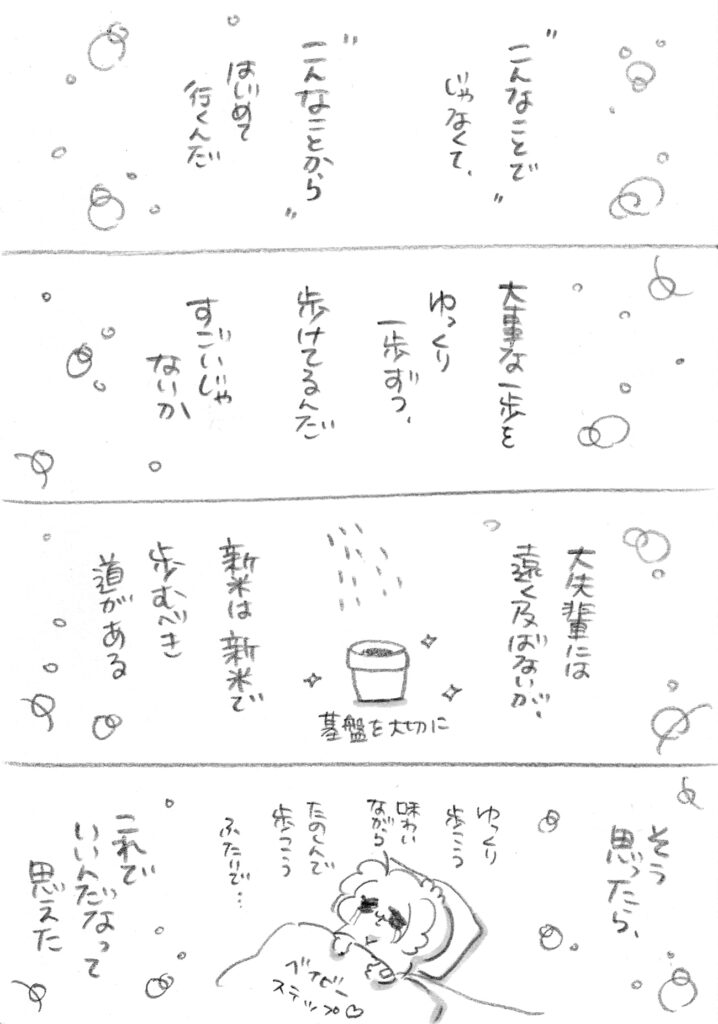 "こんなことで"
じゃなくて、
"こんなことから"
はじめて
行くんだ
大事な一歩を
ゆっくり
一歩ずつ、
歩けてるんだ
すごいじゃ
ないか
大先輩には
遠く及ばないが、
基盤を大切に
新米は新米で
歩むべき
道がある
そう
思ったら、
ゆっくり
歩こう
味わい
ながら
たのしんで
歩こう
ふたりで…
ベイビー
ステップ♡
これで
いいんだなって
思えた